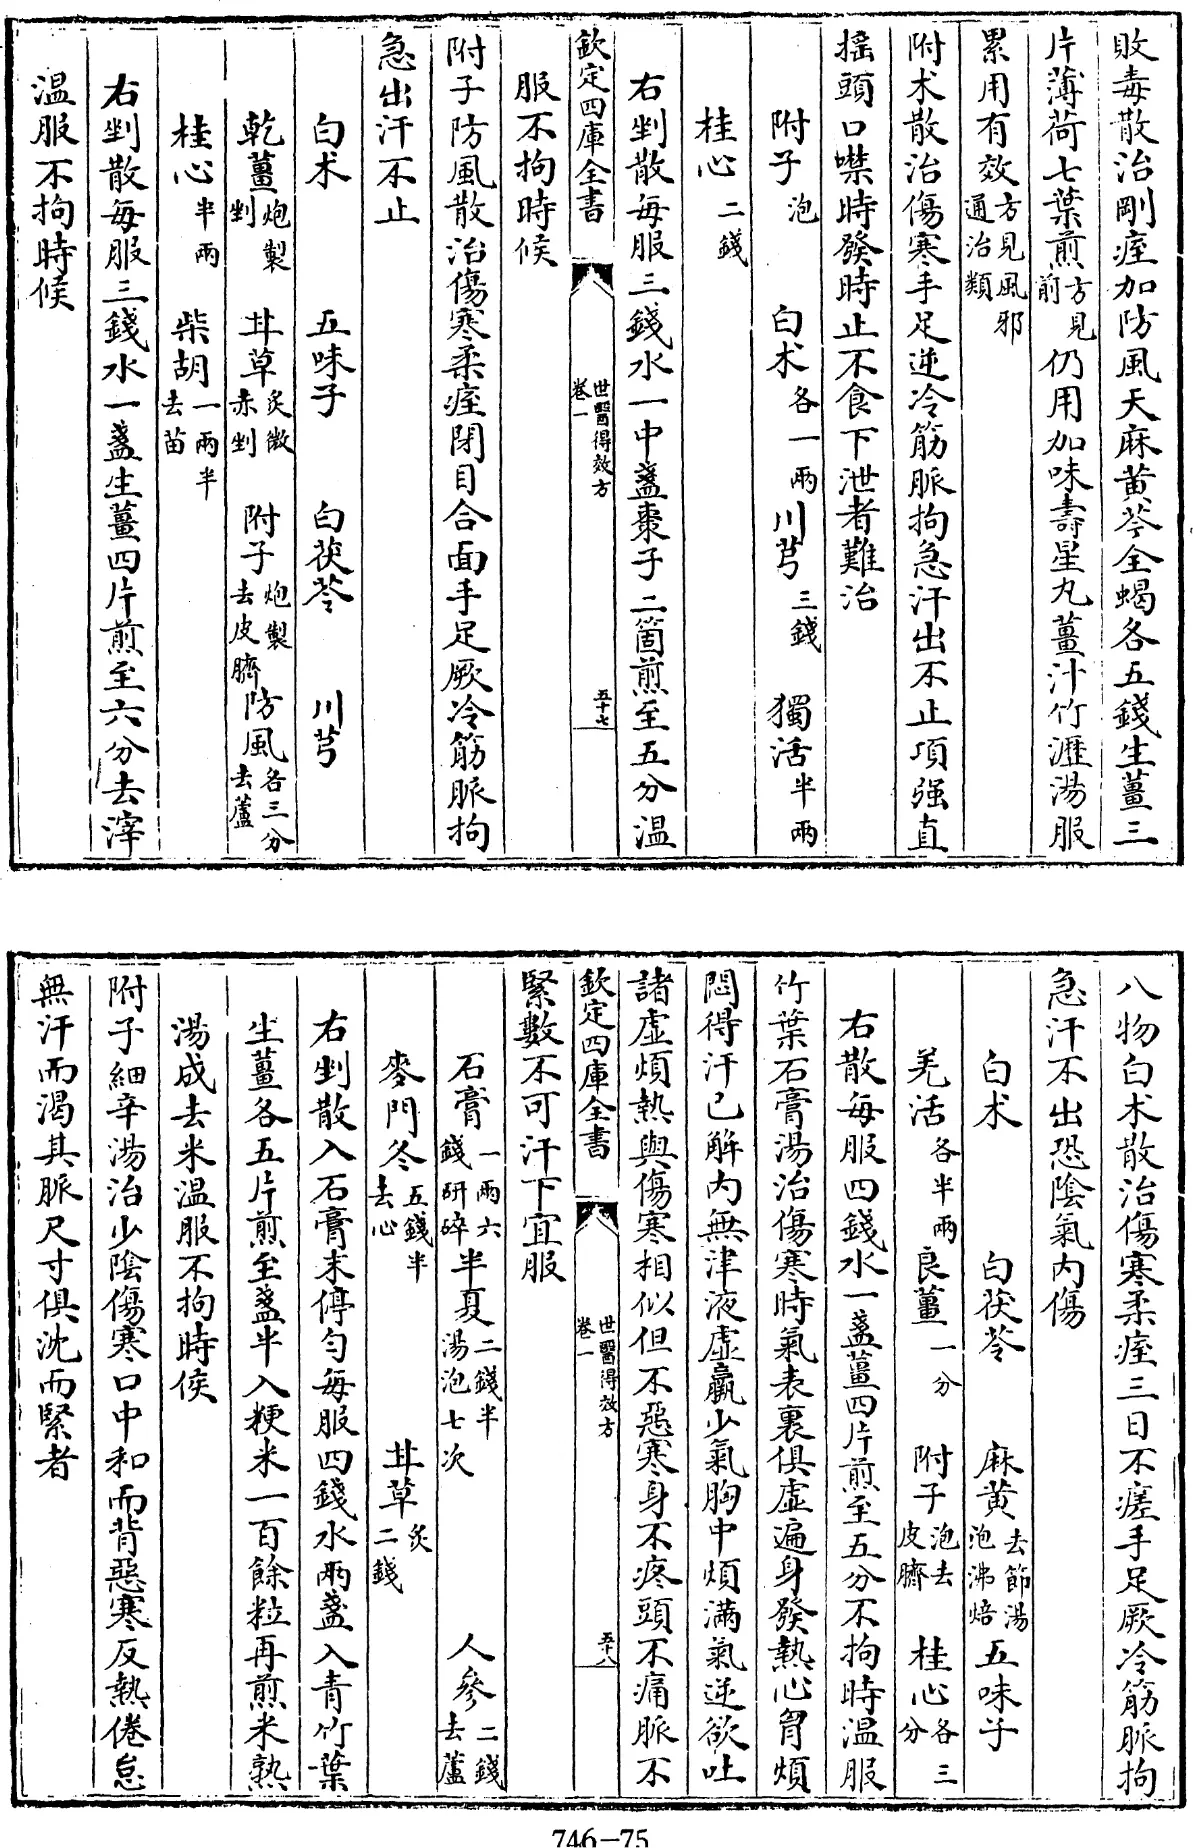 敗毒散治剛痓加防風天麻黄芩全蝎各五錢生薑三
片薄荷七葉煎方見前仍用加味壽星丸薑汁竹瀝湯服
累用有效方見風邪通治類
附术散治傷寒手足逆冷筋脈拘急汗出不止項强直
揺頭口噤時發時止不食下泄者難治
附子泡 白术各一兩 川芎三錢 獨活半兩
桂心二錢
右剉散每服三錢水一中盞棗子二箇煎至五分温
欽定四庫全書 世醫得效方 卷一 五十七
服不拘時候
附子防風散治傷寒柔痓閉目合面手足厥冷筋脈拘
急出汗不止
白术 五味子 白茯苓 川芎
乾薑炮製剉 甘草炙微赤剉 附子炮製去皮臍 防風各三分去蘆
桂心半兩 柴胡一兩半去苗
右剉散每服三錢水一盞生薑四片煎至六分去滓
温服不拘時候
八物白术散治傷寒柔痓三日不瘥手足厥冷筋脈拘
急汗不出恐陰氣内傷
白术 白茯苓 麻黄去節湯泡沸焙 五味子
羌活各半兩 良薑一分 附子泡去皮臍 桂心各三分
右散每服四錢水一盞薑四片煎至五分不拘時温服
竹葉石膏湯治傷寒時氣表裏俱虚遍身發熱心胷煩
悶得汗已解内無津液虚羸少氣胸中煩滿氣逆欲吐
諸虚煩熱與傷寒相似但不惡寒身不疼頭不痛脈不
欽定四庫全書 世醫得效方 卷一 五十八
緊數不可汗下宜服
石膏一兩六錢研碎 半夏二錢半湯泡七次 人參二錢去蘆
麥門冬五錢半去心 甘草炙二錢
右剉散入石膏末停匀每服四錢水兩盞入青竹葉
生薑各五片煎至盞半入粳米一百餘粒再煎米熟
湯成去米温服不拘時候
附子細辛湯治少陰傷寒口中和而背惡寒反熱倦怠
無汗而渴其脈尺寸俱沈而緊者
746-75